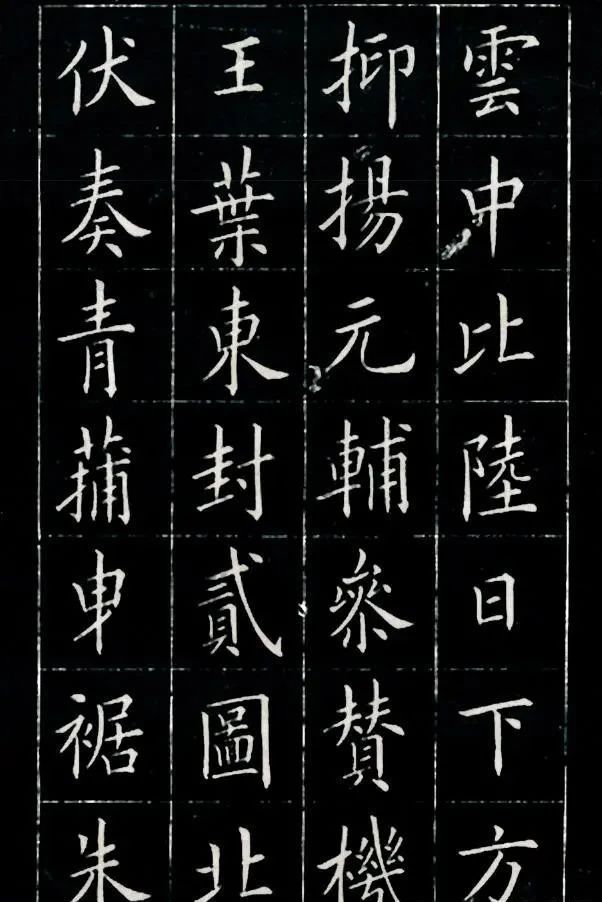 雲中比陸日下方
抑揚元輔叅賛機
王葉東封貳圖北
伏奏青蒱申裾朱